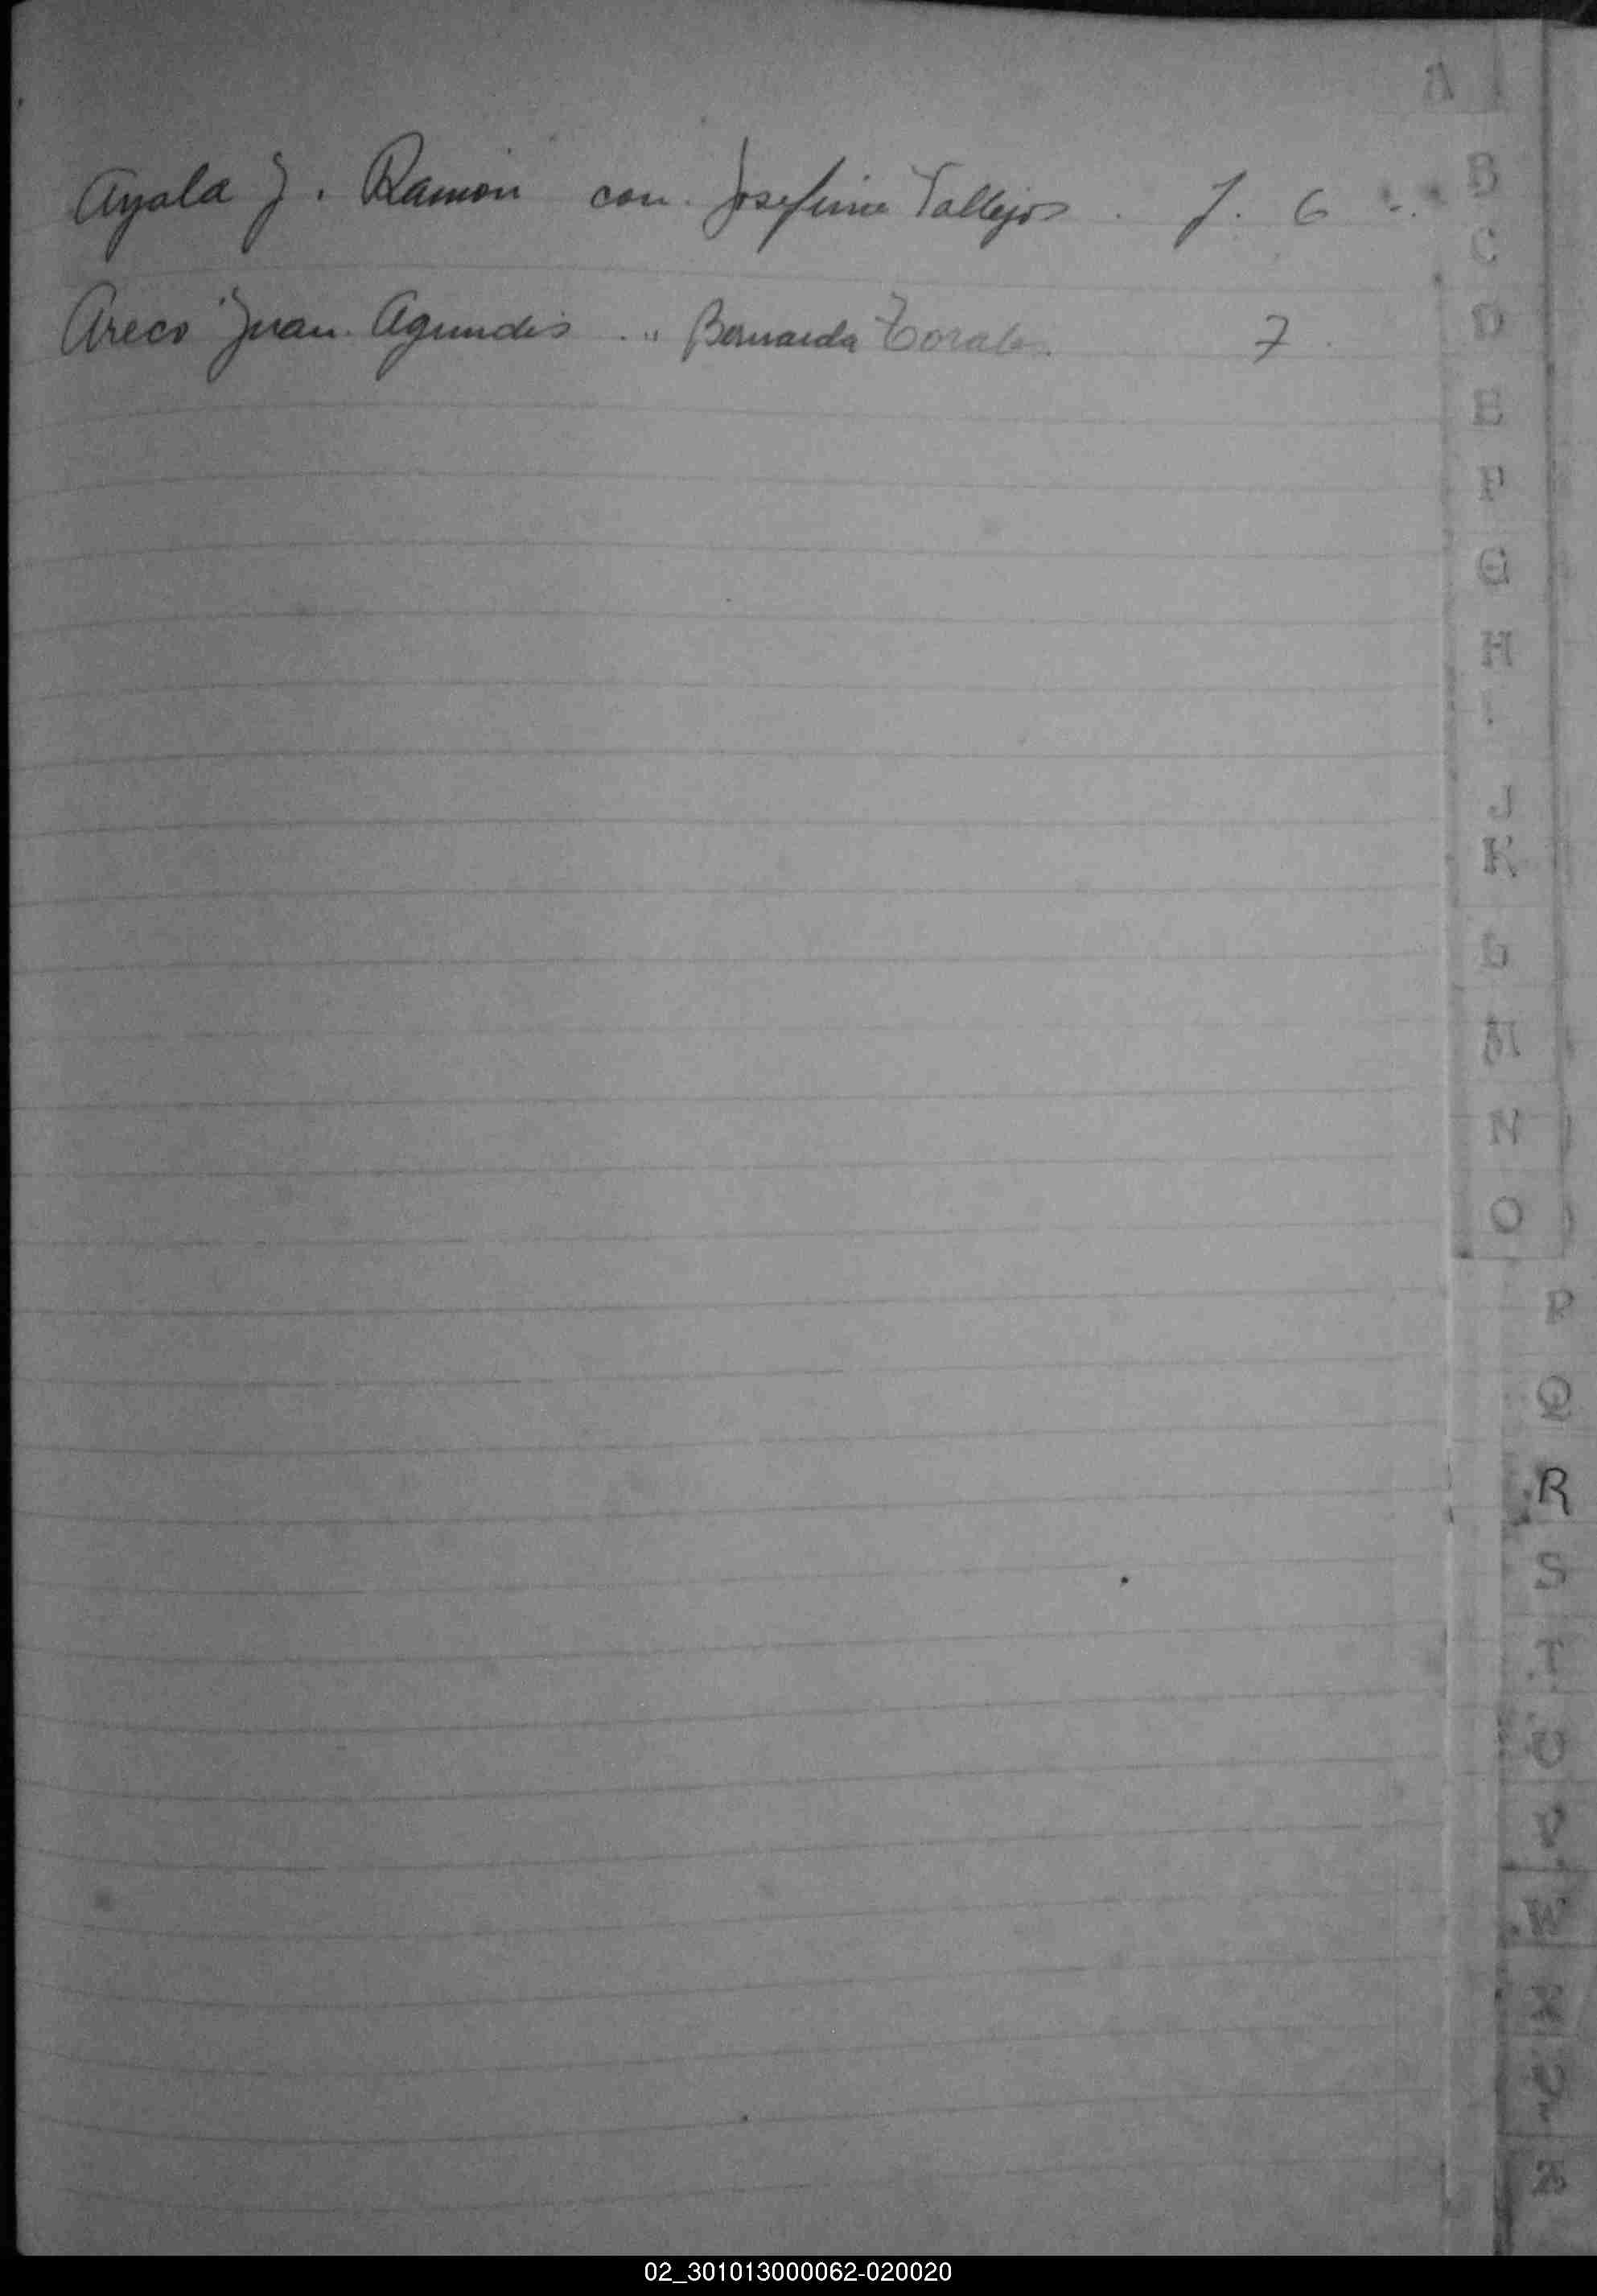 Ayala J. Ramón con Josefina Vallejos. f. 6
Areco Juan Agundis " Bernarda Torales. 7
A
B
C
D
E
F
G
H
I
J
K
L
M
N
O
P
Q
R
S
T
U
V
W
X
Y
Z
02_301013000062-020020